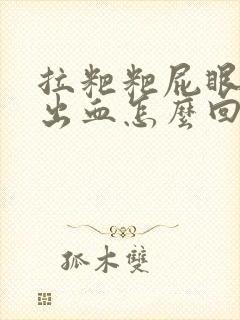 拉粑粑屁眼
出血怎麼回
孤木雙